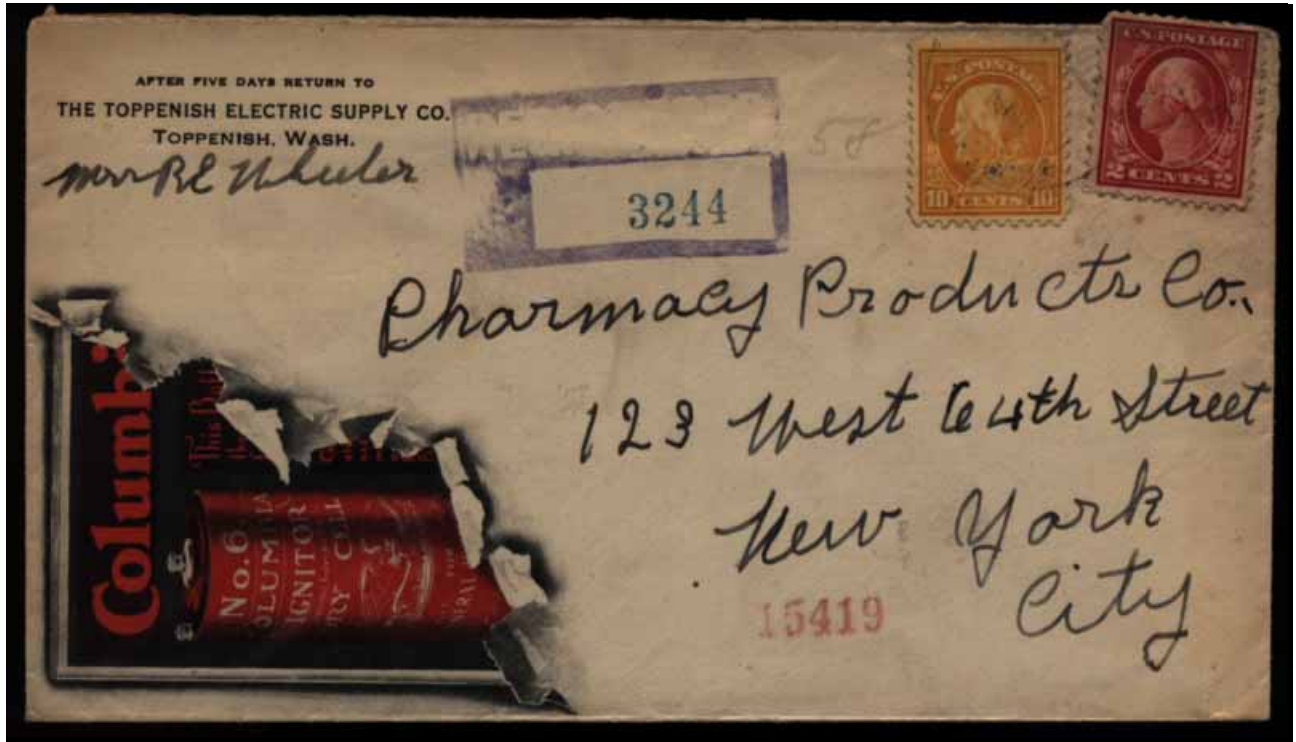 AFTER FIVE DAYS RETURN TO
THE TOPPENISH ELECTRIC SUPPLY CO.
TOPPENISH, WASH.
Mrs R E Wheeler
3244
58
U.S. POSTAGE
10 CENTS 10
U.S. POSTAGE
2 CENTS 2
Pharmacy Products Co.,
123 West 64th Street
New York
City
15419
Columb
This
No. 6
COLUMBIA
IGNITOR
DRY CELL
FOR